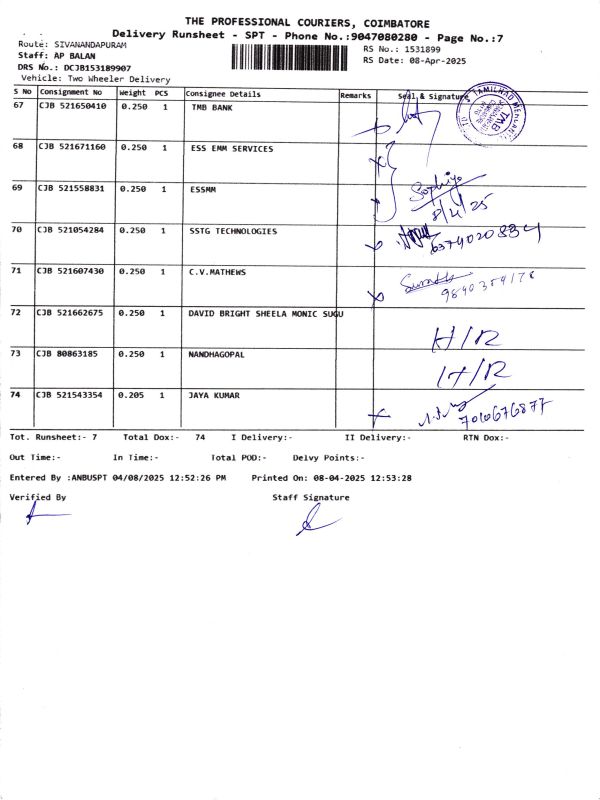 THE PROFESSIONAL COURIERS, COIMBATORE
Delivery Runsheet - SPT - Phone No.:9047080280 - Page No.:7
Route: SIVANANDAPURAM
RS No.: 1531899
Staff: AP BALAN
RS Date: 08-Apr-2025
DRS No.: DCJB153189907
Vehicle: Two Wheeler Delivery
S No Consignment No Weight PCS Consignee Details Remarks Seal & Signature
67 CJB 521650410 0.250 1 TMB BANK
TMB
68 CJB 521671160 0.250 1 ESS EMM SERVICES
69 CJB 521558831 0.250 1 ESSMM
Sophiya
8/4/25
70 CJB 521054284 0.250 1 SSTG TECHNOLOGIES
6379020834
71 CJB 521607430 0.250 1 C.V.MATHEWS
72 CJB 521662675 0.250 1 DAVID BRIGHT SHEELA MONIC SUGU
H/R
73 CJB 80863185 0.250 1 NANDHAGOPAL
H/R
74 CJB 521543354 0.205 1 JAYA KUMAR
7010676877
Tot. Runsheet:- 7 Total Dox:- 74 I Delivery:- II Delivery:- RTN Dox:-
Out Time:- In Time:- Total POD:- Delvy Points:-
Entered By :ANBUSPT 04/08/2025 12:52:26 PM Printed On: 08-04-2025 12:53:28
Verified By Staff Signature